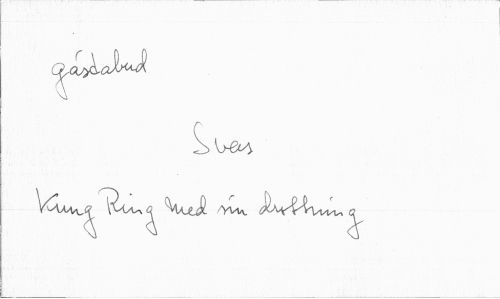 gästabud
Svea
Kung Ring med sin drottning